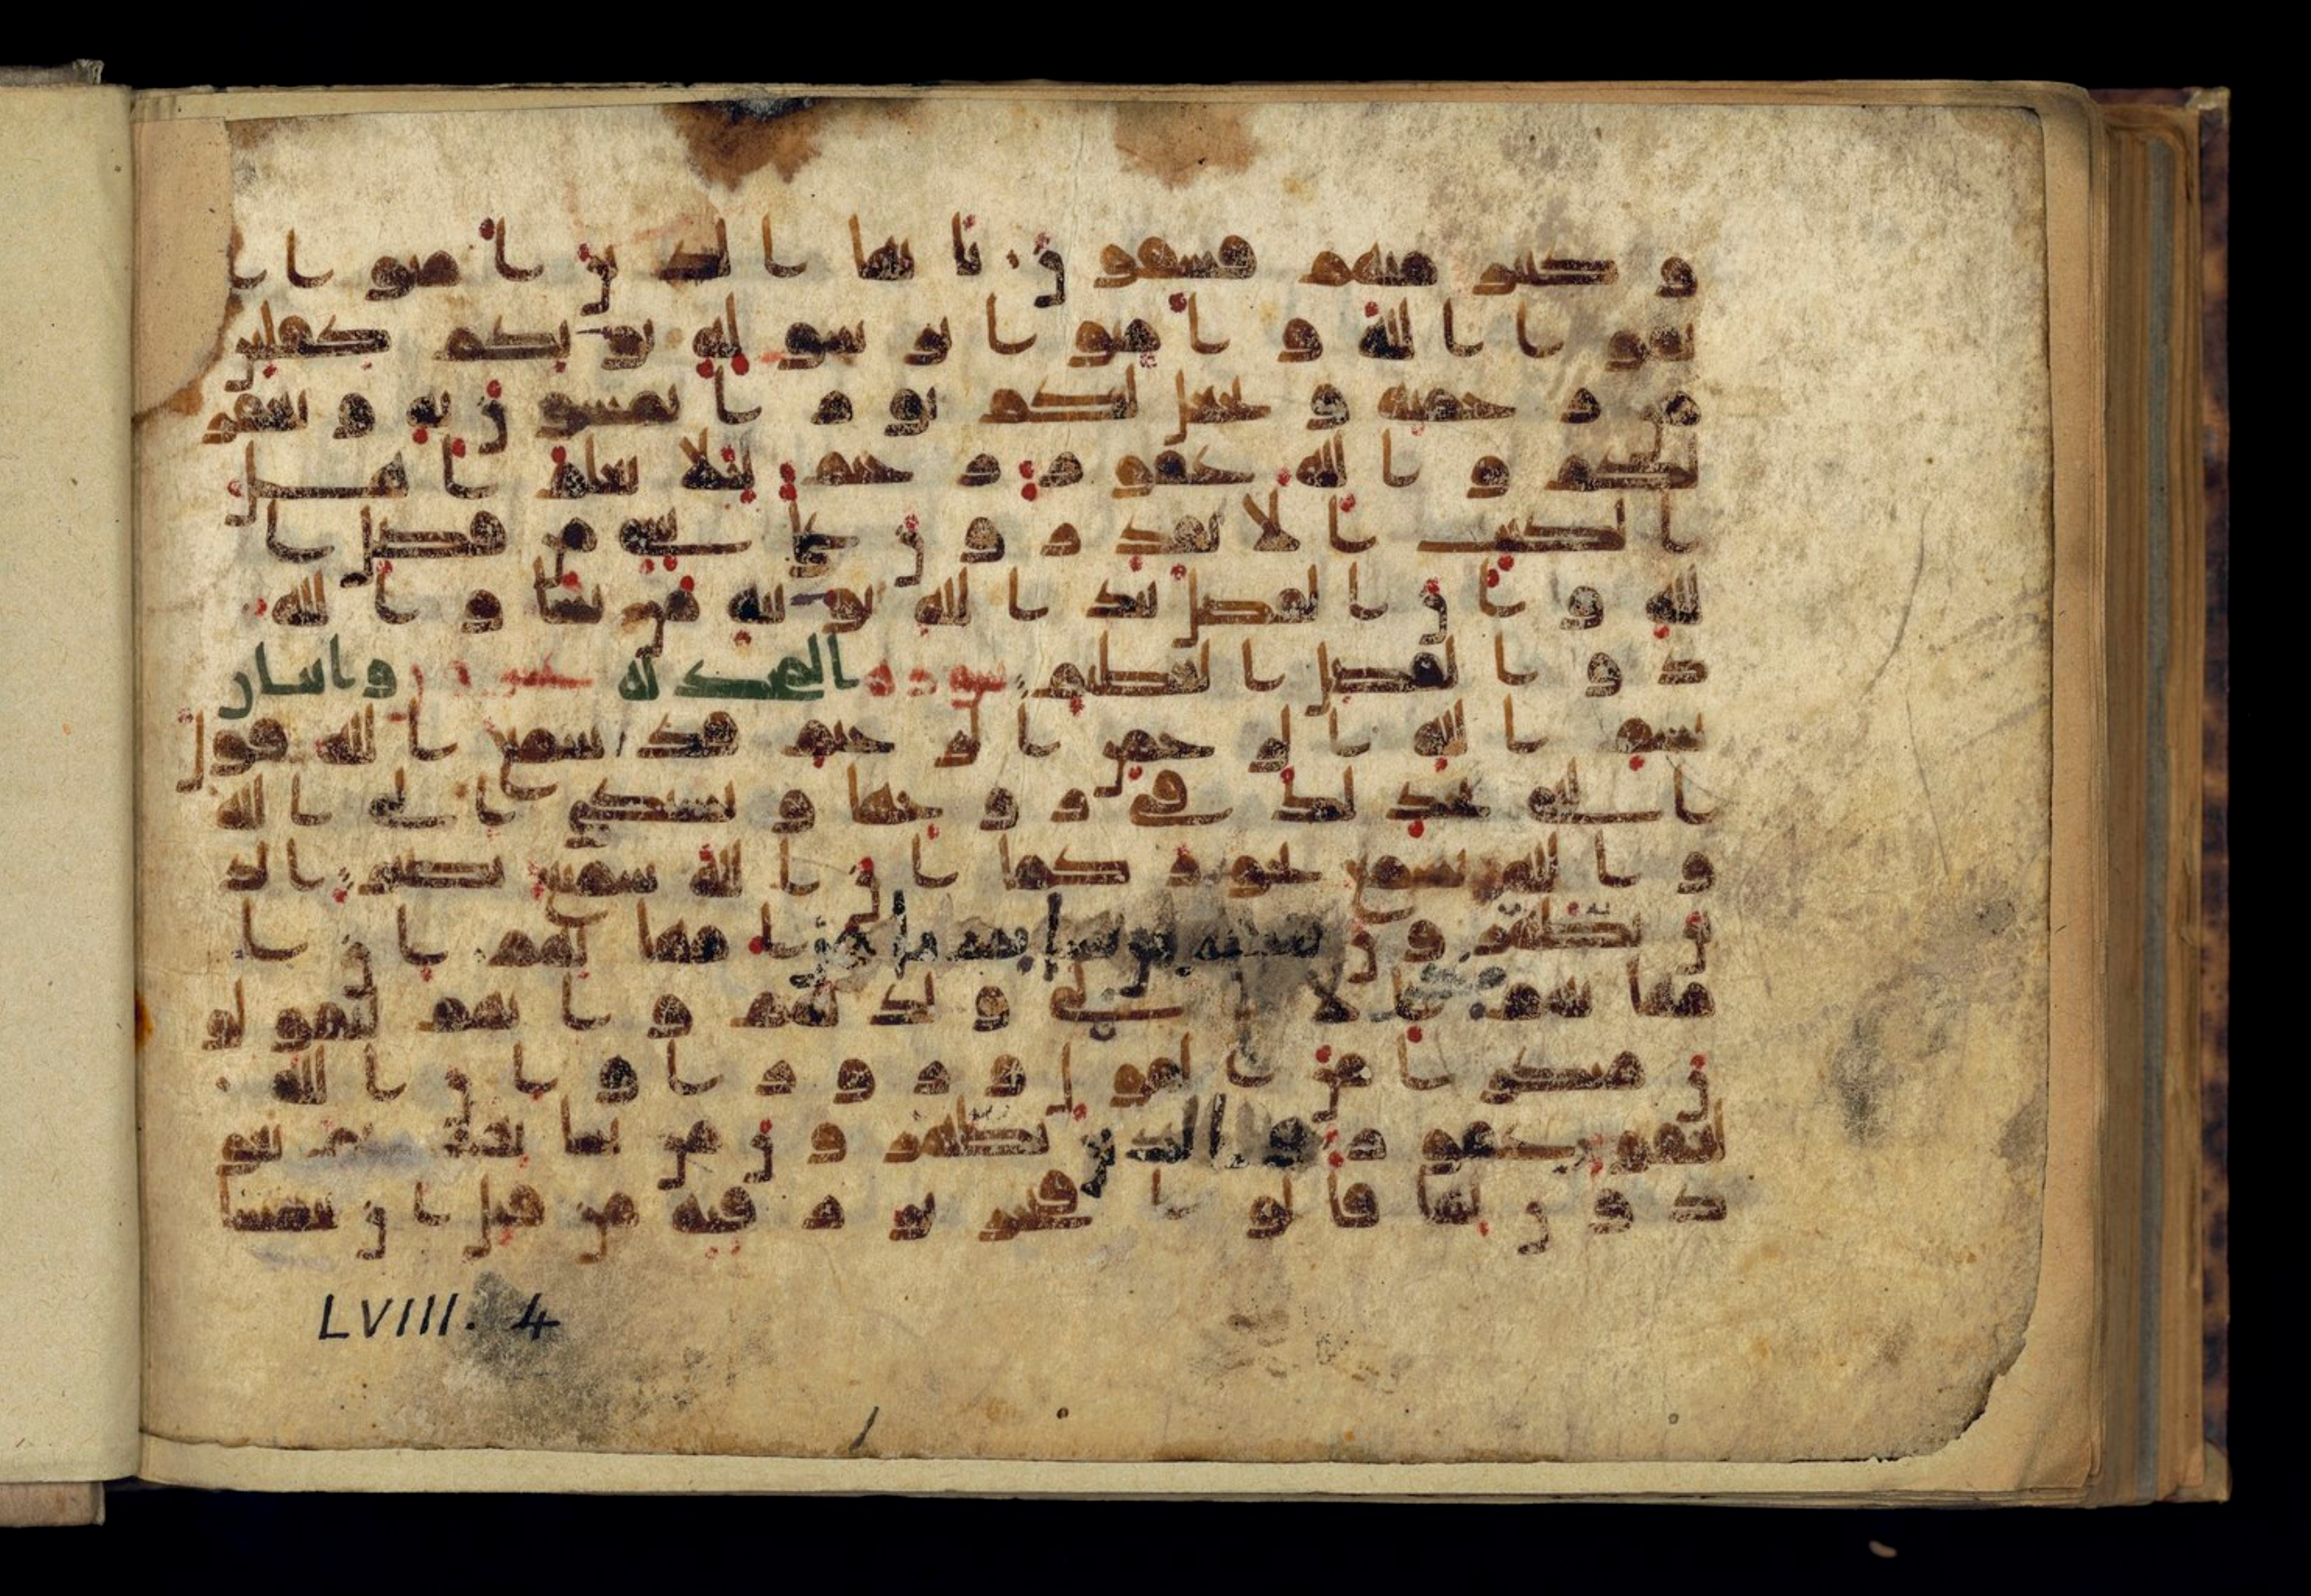 و كثير منهم فسقون يا يها الذين امنوا ا
تقوا الله وامنوا برسوله يوتكم كفلين
من رحمته ويجعل لكم نورا تمشون به ويغفر
لكم والله غفور رحيم لئلا يعلم اهل
الكتب الا يقدرون على شيء من فضل ا
لله وان الفضل بيد الله يوتيه من يشا والله
ذو الفضل العظيم سورة المجدلة عشرون واثنان
بسم الله الرحمن الرحيم قد سمع الله قول
التي تجدلك في زوجها وتشتكي الى الله
والله يسمع تحاوركما ان الله سميع بصير الذ
ين يظهرون من نسائهم ما هن امهتهم ان ا
مهتهم الا الئي ولدنهم وانهم ليقولو
ن منكرا من القول وزورا وان الله
لعفو غفور والذين يظهرون من نسائهم ثم يعو
دون لما قالوا فتحرير رقبة من قبل ان يتماسا
LVIII. 4